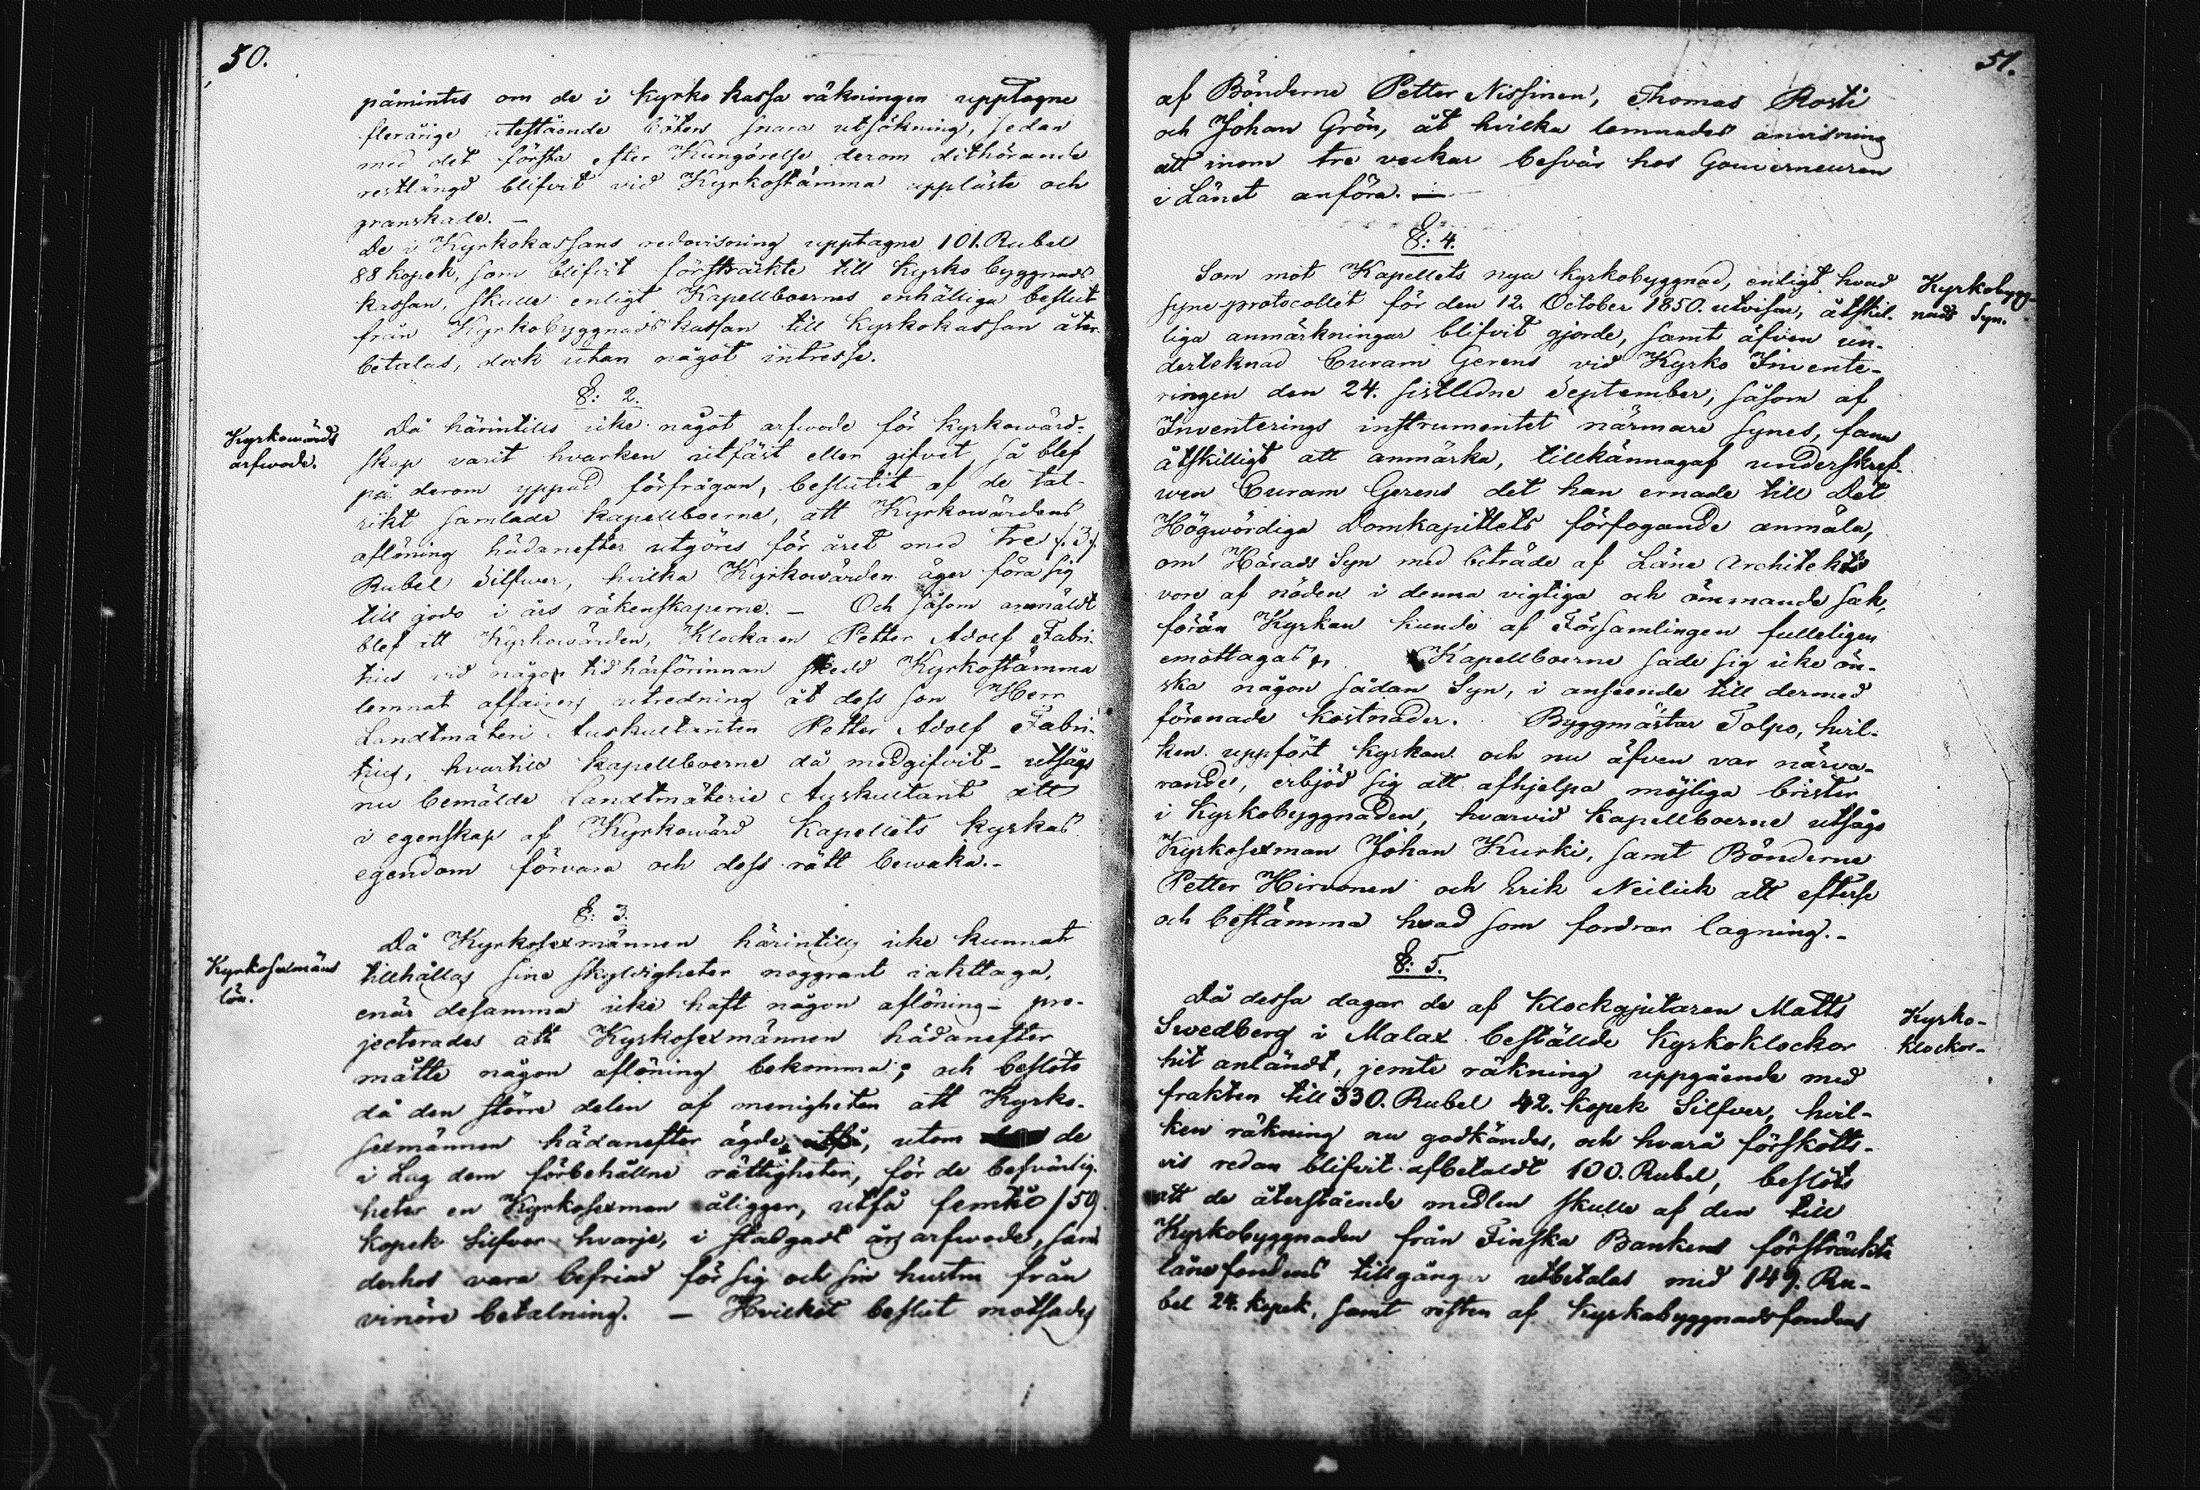 50.
påmintes om de i Kyrko kassa räkningen upptagne
flerårige utestående böters snara utsökning, sedan
med det första efter Kungörelse derom dithörande
restlängd blifvit vid Kyrkostämma uppläste och
granskade. –
De i Kyrkokassans redovisning upptagne 101. Rubel
88 kopek, som blifvit försträckte till Kyrko byggnads
kassan, skulle enligt Kapellboernes enhälliga beslut
från Kyrkobyggnads kassan till Kyrkokassan åter
betalas, dock utan något intresse.
§: 2.
Kyrkowärds
arfwode.
Då härintills icke något arfwode för Kyrkowärd-
skap varit hvarken utfäst eller gifvet, så blef
på derom yppad förfrågan, beslutit af de tal-
rikt samlade Kapellboerne, att Kyrkowärdens
aflöning hädanefter utgöres för året med Tre /: 3 :/
Rubel Silfwer, hvilka Kyrkowärden äger föra sig
till godo i års räkenskaperne. – Och såsom anmäldt
blef att Kyrkowärden, Klockaren Petter Adolf Fabri
tius vid någon tid härförinnan skedd Kyrkostämma
lemnat affairens utredning åt dess son Herr
Landtmäteri Auskultanten Petter Adolf Fabri-
tius, hvartill Kapellboerne då medgifvit – utsågs
nu bemälde Landtmäterie Auskultant att
i egenskap af Kyrkowärd Kapellets Kyrkas
egendom förvara och dess rätt bewaka. –
§: 3.
Kyrkosexmäns
lön.
Då Kyrkosexmännen härintills icke kunnat
tillhållas sine skyldigheter noggrant iakttaga,
enär desamma icke haft någon aflöning – pro-
jecterades att Kyrkosexmännen hädanefter
måtte någon aflöning bekomma; och beslöts
då den större delen af menigheten att Kyrko-
sexmännen hädanefter ägde, utom de
i Lag dem förbehållne rättigheter, för de besvärlig-
heter en Kyrkosexman åligger, utfå femtio /50/
Kopek Silfver hvarje, i stadgadt års arfwode, samt
derhos vara befriad för sig och sin hustru från
vinöre betalning. – Hvilket beslut motsades
51.
af Bönderne Petter Nissinen, Thomas Rosti
och Johan Grön, åt hvilka lemnades anvisning
att inom tre veckar besvär hos Gouverneuren
i Länet anföra. –
§: 4.
Kyrkobygg-
nads Syn.
Som mot Kapellets nya Kyrkobyggnad, enligt hvad
syne-protocollet för den 12 October 1850. utvisar, åtskil-
liga anmärkningar blifvit gjorde, samt äfven un-
dertecknad Curam Gerens vid Kyrko Invente-
ringen den 24. sistledne September, såsom af
Inventerings instrumentet närmare synes, fann
åtskilligt att anmärka, tillkännagaf underskref-
wen Curam Gerens det han ernade till Det
Högwördiga Domkapitlets förfogande anmäla,
om Härads Syn med biträde af Läne Architekts
vore af nöden i denna vigtiga och ömmande sak,
förän Kyrkan kunde af Församlingen fulleligen
emottagas. Kapellboerne sade sig icke ön-
ska någon sådan Syn, i anseende till dermed
förenade kostnader. Byggmästar Tolpo, hvil-
ken uppfört Kyrkan och nu äfven var närva-
rande, erbjöd sig att afhjelpa möjliga brister
i Kyrkobyggnaden, hvarvid Kapellboerne utsågo
Kyrkosexman Johan Kurki, samt Bönderne
Petter Hirvonen och Erik Neilick att efterse
och bestämma hvad som fordrar lagning. –
§: 5.
Kyrko-
klockor –
Då dessa dagar de af Klockgjutaren Matts
Swedberg i Malax beställde Kyrkoklockor
hit anländt, jemte räkning uppgående med
frakten till 330. Rubel 42. Kopek Silfver, hvil-
ken räkning nu godkändes, och hvarå förskotts-
vis redan blifvit afbetaldt 100. Rubel, beslöts
att de återstående medlen skulle af den till
Kyrkobyggnaden från Finska Bankens försträckte
låne fondens tillgångar utbetalas med 149. Ru-
bel 24. Kopek, samt resten af Kyrkobyggnadsfondens